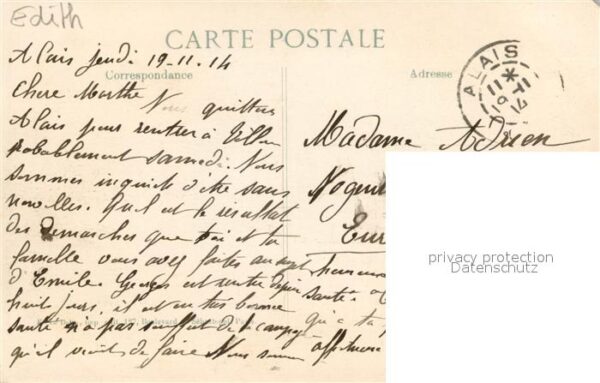 Edith
CARTE POSTALE
Alais jeudi 19-11-14
Correspondance
Adresse
ALAIS
19-11
14
Chere Marthe Nous quittons
Alais pour rentrer à
probablement samedi. Nous
sommes inquiets d'être sans
nouvelles. Quel est le résultat
des démarches que toi et ta
famille vous avez faites au sujet
d'Emile. Georges est rentré depuis
huit jours, il est en très bonne
santé n'a pas souffert de la campagne
qu'il vient de faire Nous sommes
heureux
santé
qu'à ta
Madame Adrien
Nogent
Eur
privacy protection
Datenschutz